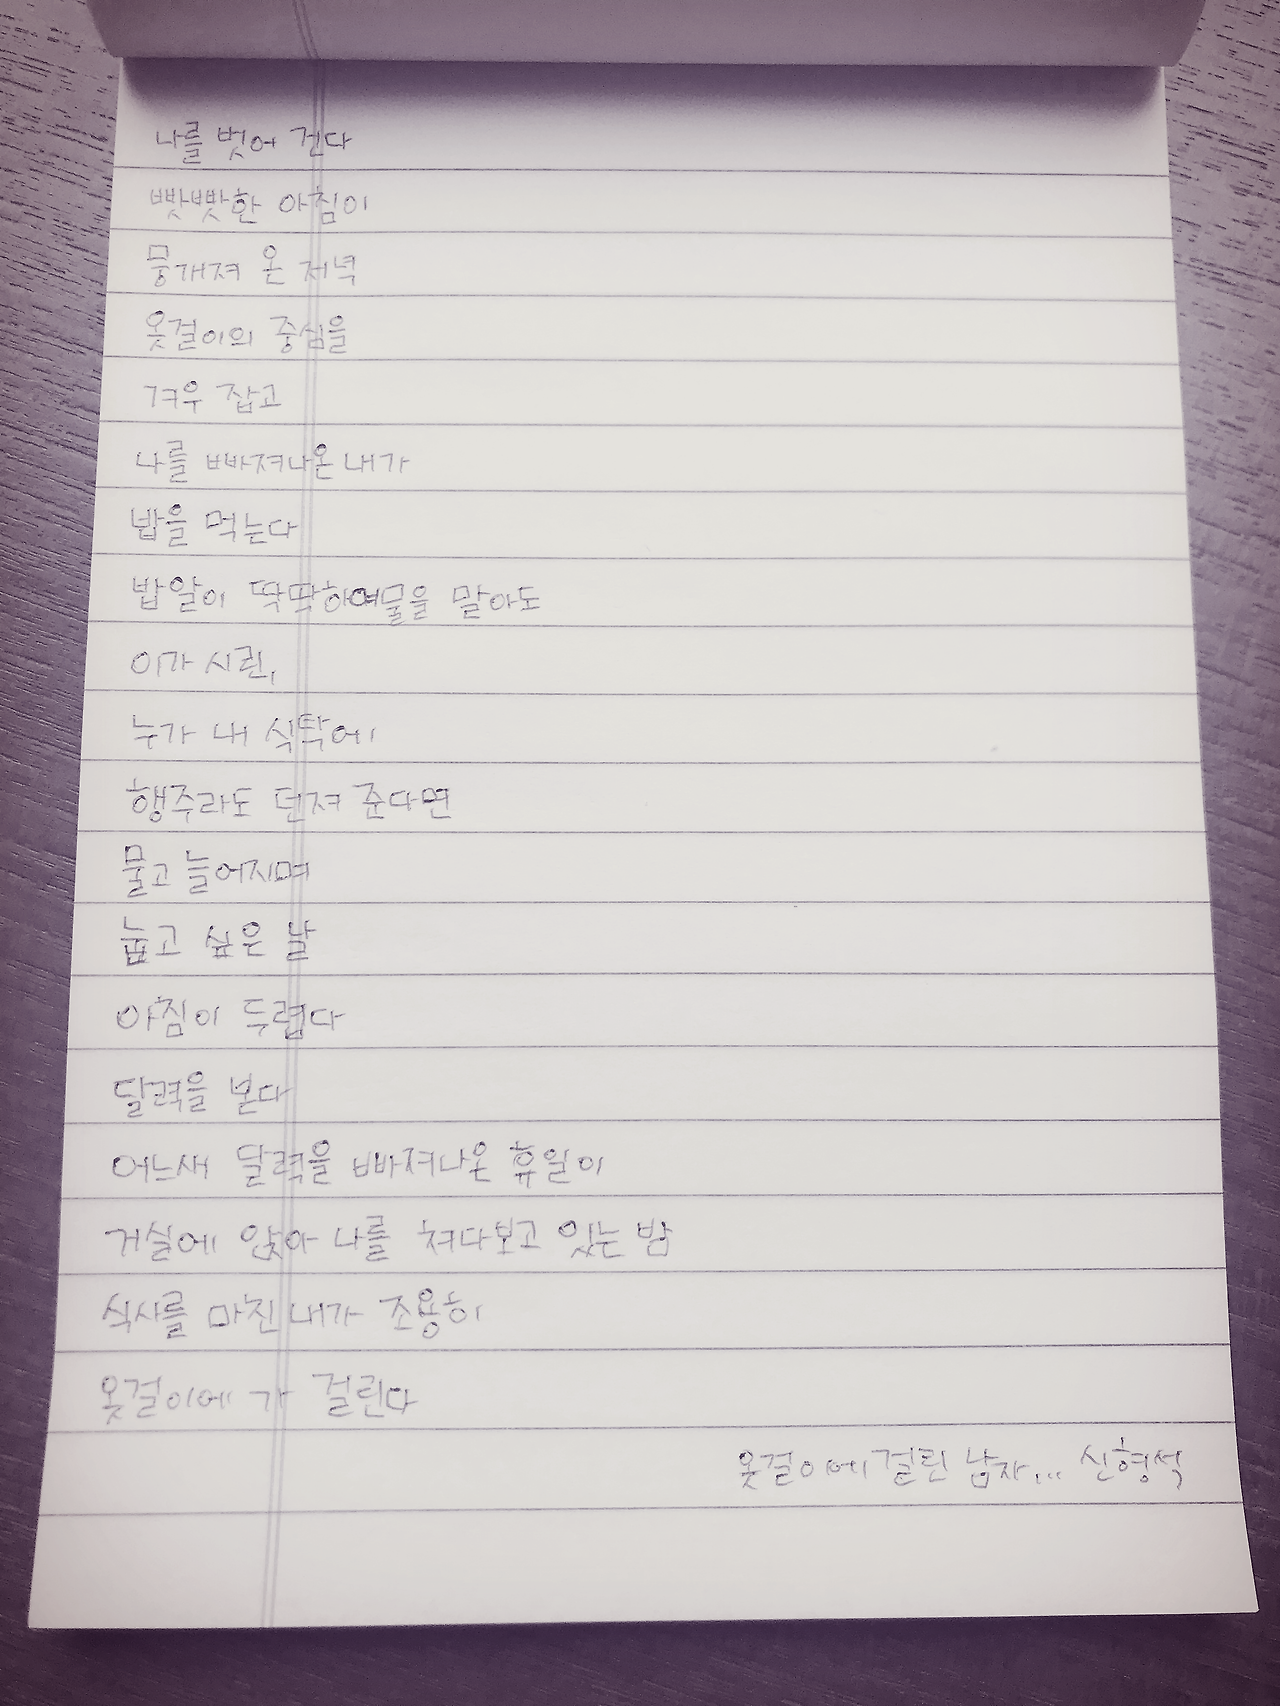 나를 벗어 건다
빳빳한 아침이
뭉개져 온 저녁
옷걸이의 중심을
겨우 잡고
나를 빠져나온 내가
밥을 먹는다
밥알이 딱딱하여물을 말아도
이가 시린,
누가 내 식탁에
행주라도 던져 준다면
물고 늘어지며
눕고 싶은 날
아침이 두렵다
달력을 본다
어느새 달력을 빠져나온 휴일이
거실에 앉아 나를 쳐다보고 있는 밤
식사를 마친 내가 조용히
옷걸이에 가 걸린다
옷걸이에 걸린 남자... 신형석